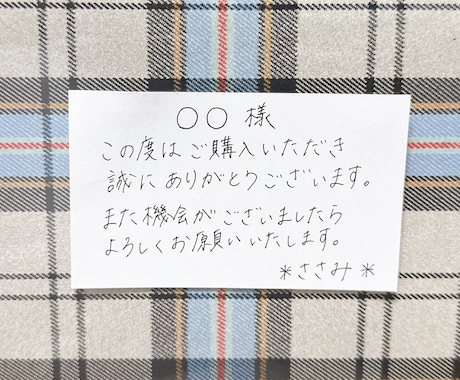 ○○ 様
この度はご購入いただき
誠にありがとうございます。
また機会がございましたら
よろしくお願いいたします。
*ささみ*